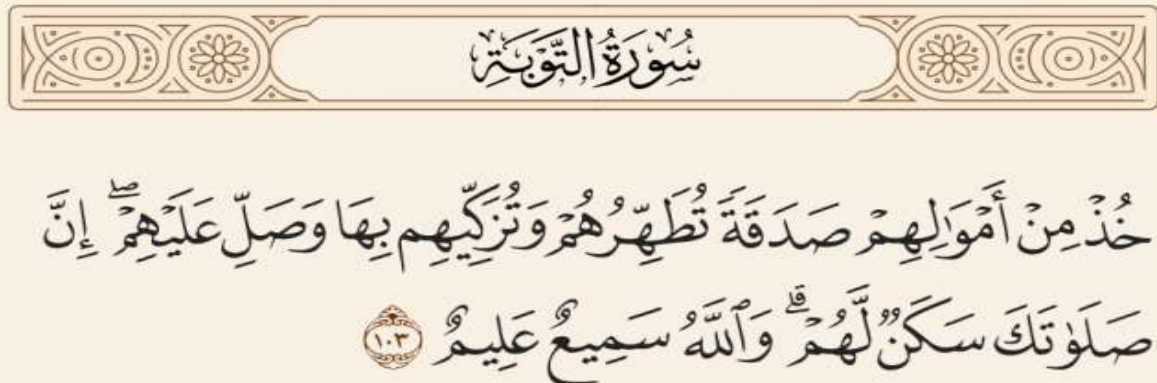 سُورَةُ التَّوۡبَةِ
خُذۡ مِنۡ أَمۡوَٰلِهِمۡ صَدَقَةٗ تُطَهِّرُهُمۡ وَتُزَكِّيهِم بِهَا وَصَلِّ عَلَيۡهِمۡۖ إِنَّ
صَلَوٰتَكَ سَكَنٞ لَّهُمۡۗ وَٱللَّهُ سَمِيعٌ عَلِيمٌ ١٠٣